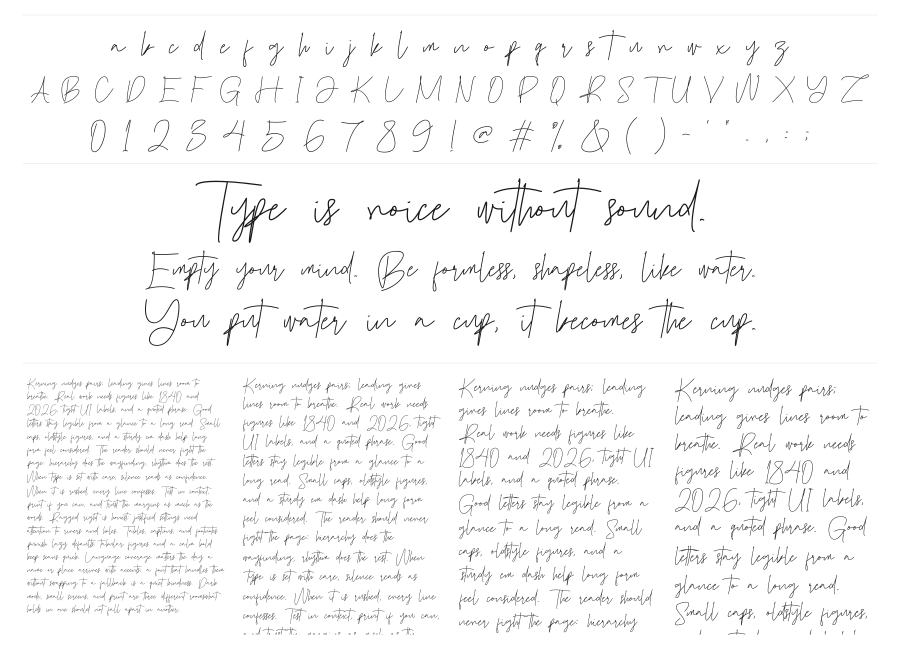 a b c d e f g h i j k l m n o p q r s T u v w x y z
A B C D E F G H I J K L M N O P Q R S T U V W X Y Z
0 1 2 3 4 5 6 7 8 9 ! @ # % & ( ) - ' " . , : ;
Type is voice without sound.
Empty your mind. Be formless, shapeless, like water.
You put water in a cup, it becomes the cup.
Kerning nudges pairs; leading gives lines room to
breathe. Real work needs figures like 1840 and
2026, tight UI labels, and a quoted phrase. Good
letters stay legible from a glance to a long read. Small
caps, oldstyle figures, and a sturdy em dash help long
form feel considered. The reader should never fight the
page: hierarchy does the wayfinding, rhythm does the rest.
When type is set with care, silence reads as confidence.
When it is rushed, every line confesses. Test in context,
print if you can, and trust the margins as much as the
words. Ragged right is honest; justified settings need
attention to rivers and holes. Tables, captions, and footnotes
punish lazy defaults. Tabular figures and a calm bold
keep rows quiet. Language coverage matters the day a
name or place arrives with accents; a font that handles them
without swapping to a fallback is a quiet kindness. Dark
mode, small screens, and print are three different rooms; what
holds in one should not fall apart in another.
Kerning nudges pairs; leading gives
lines room to breathe. Real work needs
figures like 1840 and 2026, tight
UI labels, and a quoted phrase. Good
letters stay legible from a glance to a
long read. Small caps, oldstyle figures,
and a sturdy em dash help long form
feel considered. The reader should never
fight the page: hierarchy does the
wayfinding, rhythm does the rest. When
type is set with care, silence reads as
confidence. When it is rushed, every line
confesses. Test in context, print if you can,
Kerning nudges pairs; leading
gives lines room to breathe.
Real work needs figures like
1840 and 2026, tight UI
labels, and a quoted phrase.
Good letters stay legible from a
glance to a long read. Small
caps, oldstyle figures, and a
sturdy em dash help long form
feel considered. The reader should
never fight the page: hierarchy
Kerning nudges pairs;
leading gives lines room to
breathe. Real work needs
figures like 1840 and
2026, tight UI labels,
and a quoted phrase. Good
letters stay legible from a
glance to a long read.
Small caps, oldstyle figures,